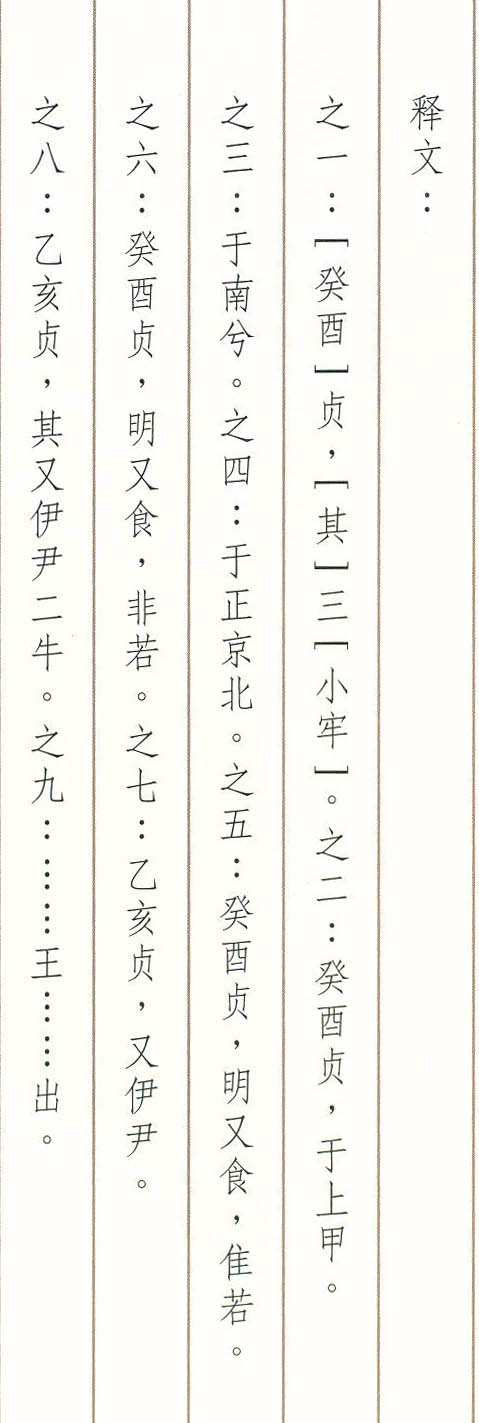 释文：
之一：[癸酉]贞，[其]三[小牢]。之二：癸酉贞，于上甲。
之三：于南兮。之四：于正京北。之五：癸酉贞，明又食，隹若。
之六：癸酉贞，明又食，非若。之七：乙亥贞，又伊尹。
之八：乙亥贞，其又伊尹二牛。之九：……王……出。